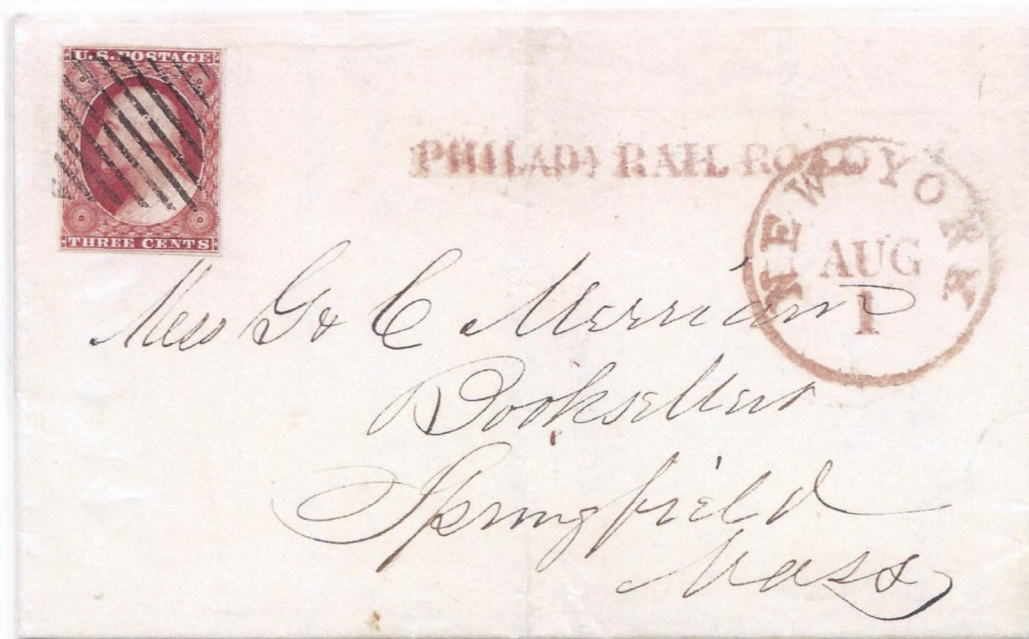 U.S. POSTAGE
THREE CENTS
PHILADA RAIL ROAD
NEW YORK
AUG
1
Mess G & C Merriam
Booksellers
Springfield
Mass